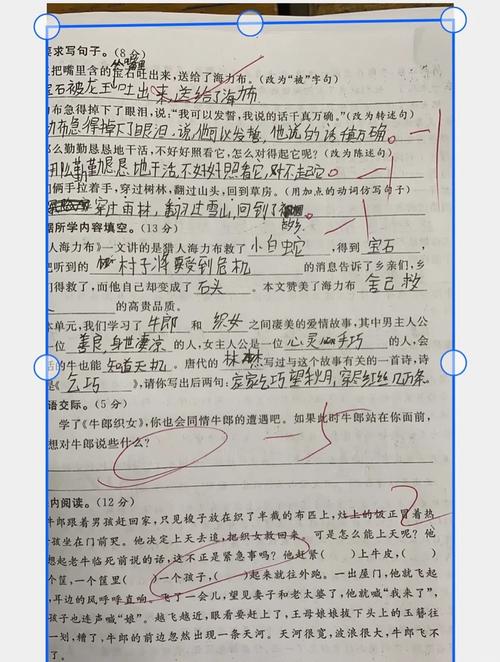 要求写句子。(8分)
把嘴里含的宝石吐出来,送给了海力布。(改为“被”字句)
宝石被龙王吐出来,送给了海力布
力布急得掉了眼泪,说:“我可以发誓,我说的话千真万确。”(改为转述句)
力布急得掉下了眼泪,说,他可以发誓,他说的话千真万确。 -1
那么勤勤恳恳地干活,不好好照看它,怎么对得起它呢?(改为陈述句)
那么勤勤恳恳地干活,不好好照看它,对不起它。 -1
们俩手拉着手,穿过树林,翻过山头,回到草房。(用加点的动词仿写句子)
穿过雨林,翻过雪山,回到了 -1
据所学内容填空。(13分)
人海力布》一文讲的是猎人海力布救了 小白蛇 ,得到 宝石 ,
把听到的 村子将要受到危机 的消息告诉了乡亲们,乡
们得救了,而他自己却变成了 石头 。本文赞美了海力布 舍己救
人 的高贵品质。
本单元,我们学习了 牛郎 和 织女 之间凄美的爱情故事,其中男主人公
一位 善良,身世凄凉 的人,女主人公是一位 心灵手巧 的人,会
话的牛也能 知道天机 。唐代的 林杰 写过与这个故事有关的一首诗,诗
是《 乞巧 》,请你写出后两句: 家家乞巧望秋月,穿尽红丝几万条。
语交际。(5分)
学了《牛郎织女》,你也会同情牛郎的遭遇吧。如果此时牛郎站在你面前,
想对牛郎说些什么? -5
内阅读。(12分) 2
牛郎跟着男孩赶回家,只见梭子放在织了半截的布匹上,灶上的饭正冒着热
孩坐在门前哭。他决定上天去追,把织女救回来。可是怎么能上天呢?他
想起老牛临死前说的话,这不正是紧急事吗?他赶紧( )上牛皮,( )
个筐,一个筐里( )一个孩子,( )起来就往外跑。一出屋门,他就飞起
耳边的风呼呼直响。飞了一会儿,望见妻子和老太婆了,他就喊“我来了”,
孩子也连声喊“娘”。越飞越近,眼看要赶上了,王母娘娘拔下头上的玉簪往
一划,糟了,牛郎的前边忽然出现一条天河。天河很宽,波浪很大,牛郎飞不
了。